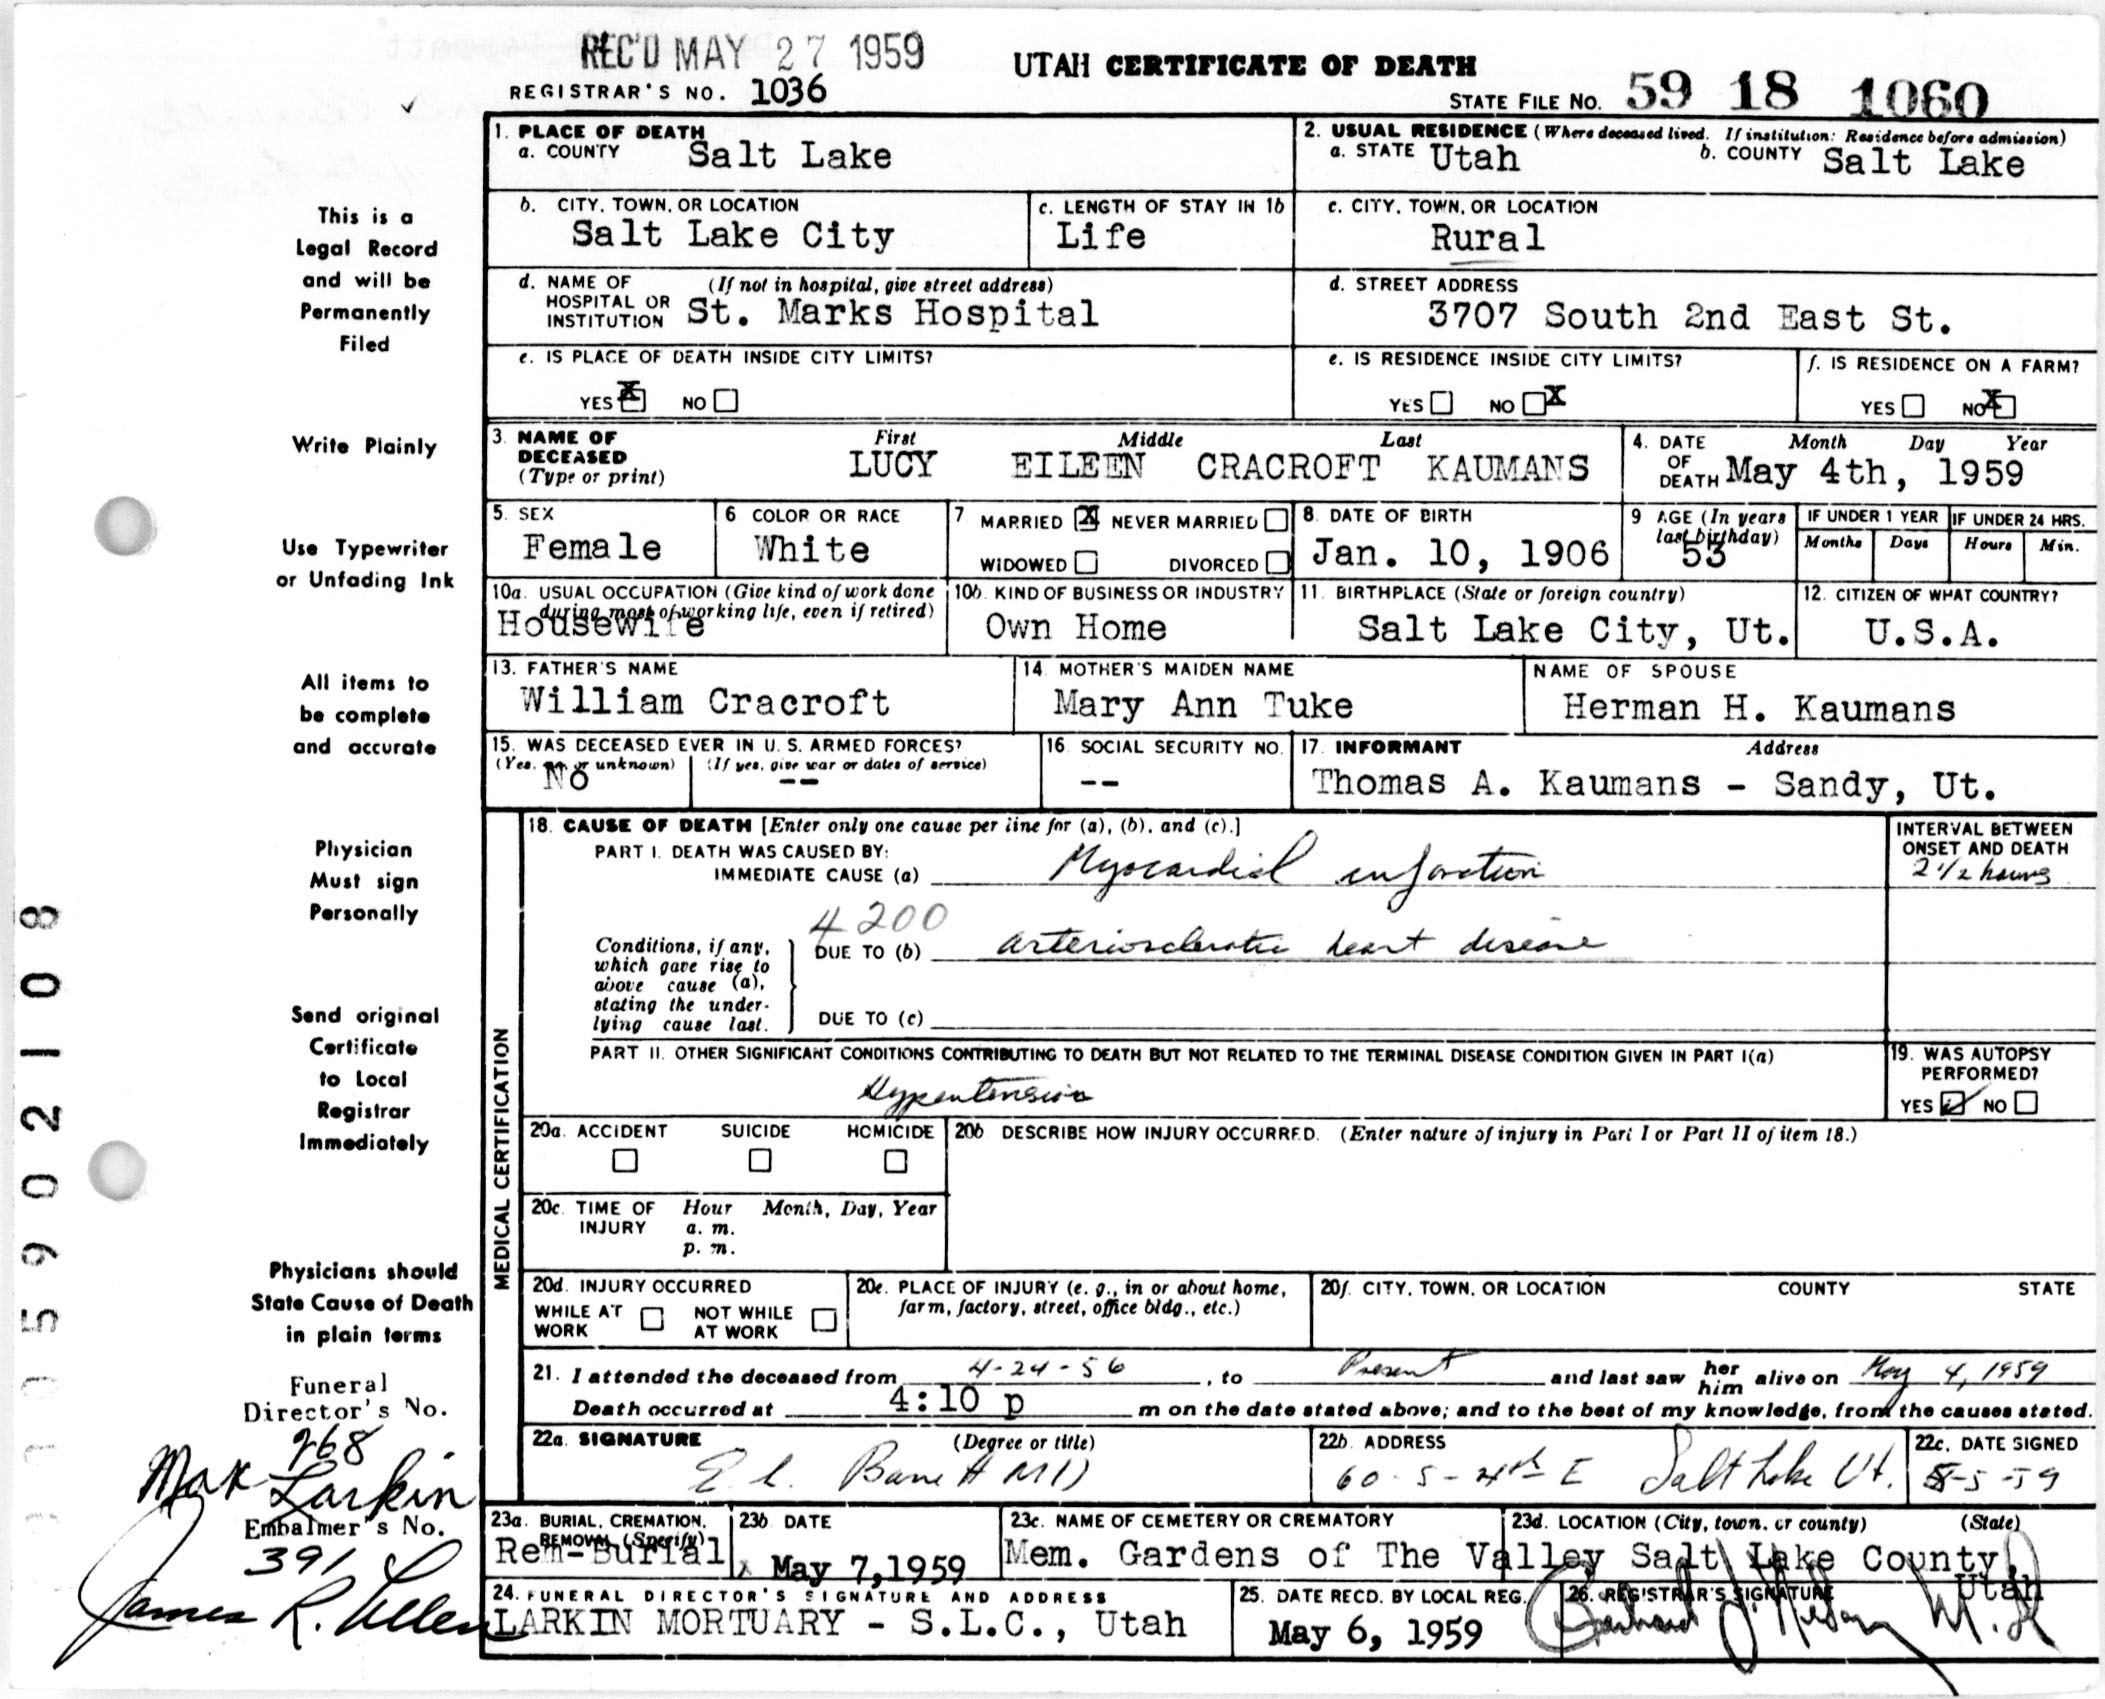 REC'D MAY 27 1959
UTAH CERTIFICATE OF DEATH
REGISTRAR'S NO. 1036
STATE FILE NO. 59 18 1060
This is a
Legal Record
and will be
Permanently
Filed
Write Plainly
Use Typewriter
or Unfading Ink
All items to
be complete
and accurate
Physician
Must sign
Personally
Send original
Certificate
to Local
Registrar
Immediately
Physicians should
State Cause of Death
in plain terms
Funeral
Director's No.
268
Max Larkin
Embalmer's No.
391
James R.
005902108
1. PLACE OF DEATH
a. COUNTY Salt Lake
2. USUAL RESIDENCE (Where deceased lived. If institution: Residence before admission)
a. STATE Utah b. COUNTY Salt Lake
b. CITY, TOWN, OR LOCATION
Salt Lake City
c. LENGTH OF STAY IN 1b
Life
c. CITY, TOWN, OR LOCATION
Rural
d. NAME OF HOSPITAL OR INSTITUTION (If not in hospital, give street address)
St. Marks Hospital
d. STREET ADDRESS
3707 South 2nd East St.
e. IS PLACE OF DEATH INSIDE CITY LIMITS?
YES X NO
e. IS RESIDENCE INSIDE CITY LIMITS?
YES NO X
f. IS RESIDENCE ON A FARM?
YES NO X
3. NAME OF DECEASED (Type or print)
First Middle Last
LUCY EILEEN CRACROFT KAUMANS
4. DATE OF DEATH Month Day Year
May 4th, 1959
5. SEX
Female
6 COLOR OR RACE
White
7 MARRIED X NEVER MARRIED
WIDOWED DIVORCED
8. DATE OF BIRTH
Jan. 10, 1906
9 AGE (In years last birthday)
53
IF UNDER 1 YEAR
Months Days
IF UNDER 24 HRS.
Hours Min.
10a. USUAL OCCUPATION (Give kind of work done during most of working life, even if retired)
Housewife
10b. KIND OF BUSINESS OR INDUSTRY
Own Home
11. BIRTHPLACE (State or foreign country)
Salt Lake City, Ut.
12. CITIZEN OF WHAT COUNTRY?
U.S.A.
13. FATHER'S NAME
William Cracroft
14. MOTHER'S MAIDEN NAME
Mary Ann Tuke
NAME OF SPOUSE
Herman H. Kaumans
15. WAS DECEASED EVER IN U. S. ARMED FORCES?
(Yes, no, or unknown) (If yes, give war or dates of service)
No --
16. SOCIAL SECURITY NO.
--
17. INFORMANT Address
Thomas A. Kaumans - Sandy, Ut.
MEDICAL CERTIFICATION
18. CAUSE OF DEATH [Enter only one cause per line for (a), (b), and (c).]
PART I. DEATH WAS CAUSED BY:
IMMEDIATE CAUSE (a) Myocardial infarction
INTERVAL BETWEEN ONSET AND DEATH
2 1/2 hours
4200
Conditions, if any, which gave rise to above cause (a), stating the underlying cause last.
DUE TO (b) arteriosclerotic heart disease
DUE TO (c)
PART II. OTHER SIGNIFICANT CONDITIONS CONTRIBUTING TO DEATH BUT NOT RELATED TO THE TERMINAL DISEASE CONDITION GIVEN IN PART I(a)
Hypertension
19. WAS AUTOPSY PERFORMED?
YES NO
20a. ACCIDENT SUICIDE HOMICIDE
20b DESCRIBE HOW INJURY OCCURRED. (Enter nature of injury in Part I or Part II of item 18.)
20c. TIME OF INJURY Hour Month, Day, Year
a. m.
p. m.
20d. INJURY OCCURRED
WHILE AT WORK NOT WHILE AT WORK
20e. PLACE OF INJURY (e. g., in or about home, farm, factory, street, office bldg., etc.)
20f. CITY, TOWN, OR LOCATION COUNTY STATE
21. I attended the deceased from 4-24-56, to Present and last saw her him alive on May 4, 1959
Death occurred at 4:10 p m on the date stated above; and to the best of my knowledge, from the causes stated.
22a. SIGNATURE (Degree or title)
MD
22b. ADDRESS
60 S - 4th E Salt Lake Ut.
22c. DATE SIGNED
5-5-59
23a. BURIAL, CREMATION, REMOVAL (Specify)
Rem-Burial
23b DATE
May 7, 1959
23c. NAME OF CEMETERY OR CREMATORY
Mem. Gardens of The Valley
23d. LOCATION (City, town, or county) (State)
Salt Lake County, Utah
24. FUNERAL DIRECTOR'S SIGNATURE AND ADDRESS
LARKIN MORTUARY - S.L.C., Utah
25. DATE RECD. BY LOCAL REG.
May 6, 1959
26. REGISTRAR'S SIGNATURE
M.D